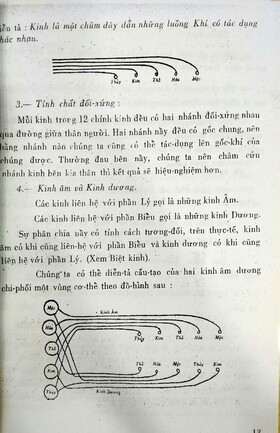 ễn tả : Kinh là một chùm dây dẫn những luồng Khí có tác dụng
hác nhau.
Thủy Kim Thổ Hỏa Mộc
3.— Tính chất đối-xứng :
Mỗi kinh trong 12 chính kinh đều có hai nhánh đối-xứng nhau
qua đường giữa thân người. Hai nhánh nầy đều có gốc chung, nên
bằng nhánh nào chúng ta cũng có thể tác-dụng lên gốc-khí của
chúng được. Thường đau bên nầy, chúng ta nên châm cứu
nhánh kinh bên kia thân thì kết quả sẽ hiệu-nghiệm hơn.
4.— Kinh âm và Kinh dương.
Các kinh liên hệ với phần Lý gọi là những kinh Âm.
Các kinh liên hệ với phần Biểu gọi là những kinh Dương.
Sự phân chia nầy có tính cách tương-đối, trên thực-tế, kinh
âm có khi cũng liên-hệ với phần Biểu và kinh dương có khi cũng
liên hệ với phần Lý. (Xem Biệt kinh).
Chúng ta có thể diễn-tả cấu-tạo của hai kinh âm dương
chi-phối một vùng cơ-thể theo đồ-hình sau :
Mộc
Kinh Âm
Hỏa
Thủy Kim Thổ Hỏa Mộc
Thổ
Thổ Hỏa Mộc Thủy Kim
Kim
Thủy
Kinh Dương